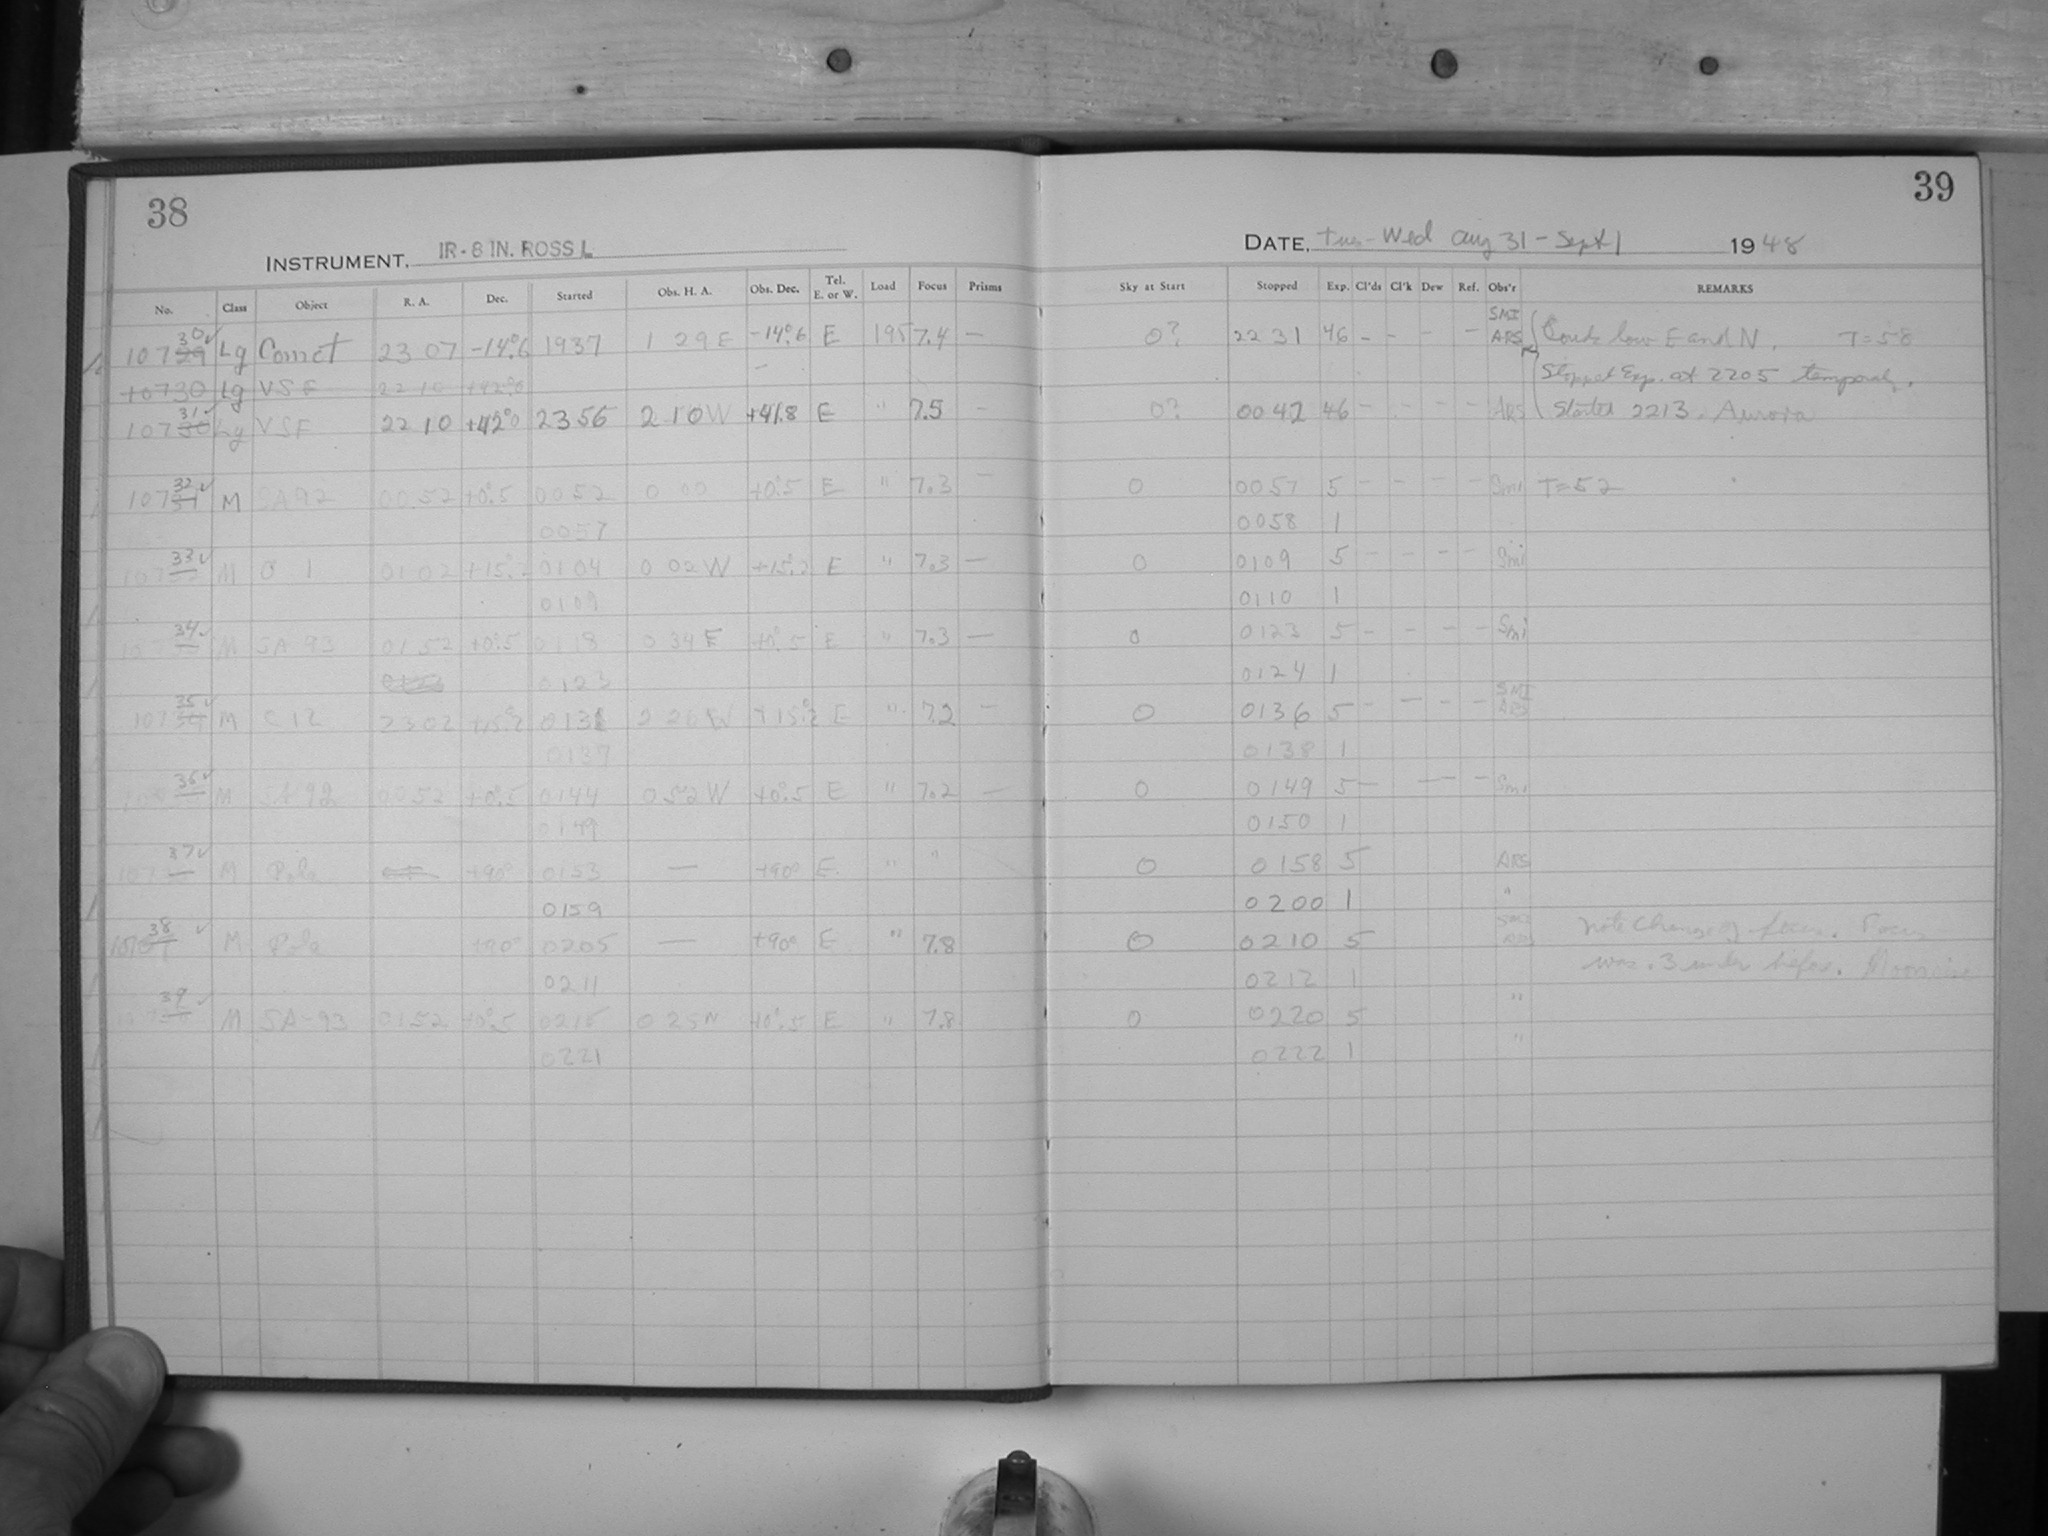 38
INSTRUMENT. IR-8 IN. ROSS L
No. Class Object R. A. Dec. Started Obs. H. A. Obs. Dec. Tel. E. or W. Load Focus Prisms
30 ✓
10729 Lg Comet 23 07 -14°.6 1937 1 29 E -14°.6 E 195 7.4 —
10730 Lg VSF 22 10 +42°0
31 ✓
10730 Lg VSF 22 10 +42°0 2356 2 10 W +41.8 E " 7.5 —
32 ✓
10731 M SA 92 00 52 +0°.5 0052 0 00 +0°.5 E " 7.3 —
0057
33 ✓
107 M 01 02 +15°.2 0104 0 02 W +15°.2 E " 7.3 —
0109
34 ✓
107 M SA 93 01 52 +0°.5 0118 0 34 E +0°.5 E " 7.3 —
0123
35 ✓
107 M C 12 23 02 +15°.2 0131 2 26 W +15°.2 E " 7.2 —
0137
36 ✓
M SA 92 00 52 +0°.5 0144 0 52 W +0°.5 E " 7.2 —
0149
37 ✓
107 M Pole +90° 0153 — +90° E " "
0159
38 ✓
M Pole +90° 0205 — +90° E " 7.8
0211
39 ✓
M SA-93 01 52 +0°.5 0215 0 25 +0°.5 E " 7.8
0221
39
DATE, Tues-Wed Aug 31 - Sept 1 1948
Sky at Start Stopped Exp. Cl'ds Cl'k Dew Ref. Obs'r REMARKS
0? 22 31 46 - - - - SMI ARS low E and N. T=58
Stopped Exp. at 2205
0? 0042 46 - - - - ARS Started 2213. Aurora
0 0057 5 - - - - Smi T=52
0058 1
0 0109 5 - - - - Smi
0110 1
0 0123 5 - - - - Smi
0124 1
0 0136 5 - - - - SMI ARS
0138 1
0 0149 5 - - - Smi
0150 1
0 0158 5 ARS
0200 1 "
0 0210 5 SMI ARS Note change of focus. Focus
0212 1 was .3 under before.
0 0220 5 "
0222 1 "